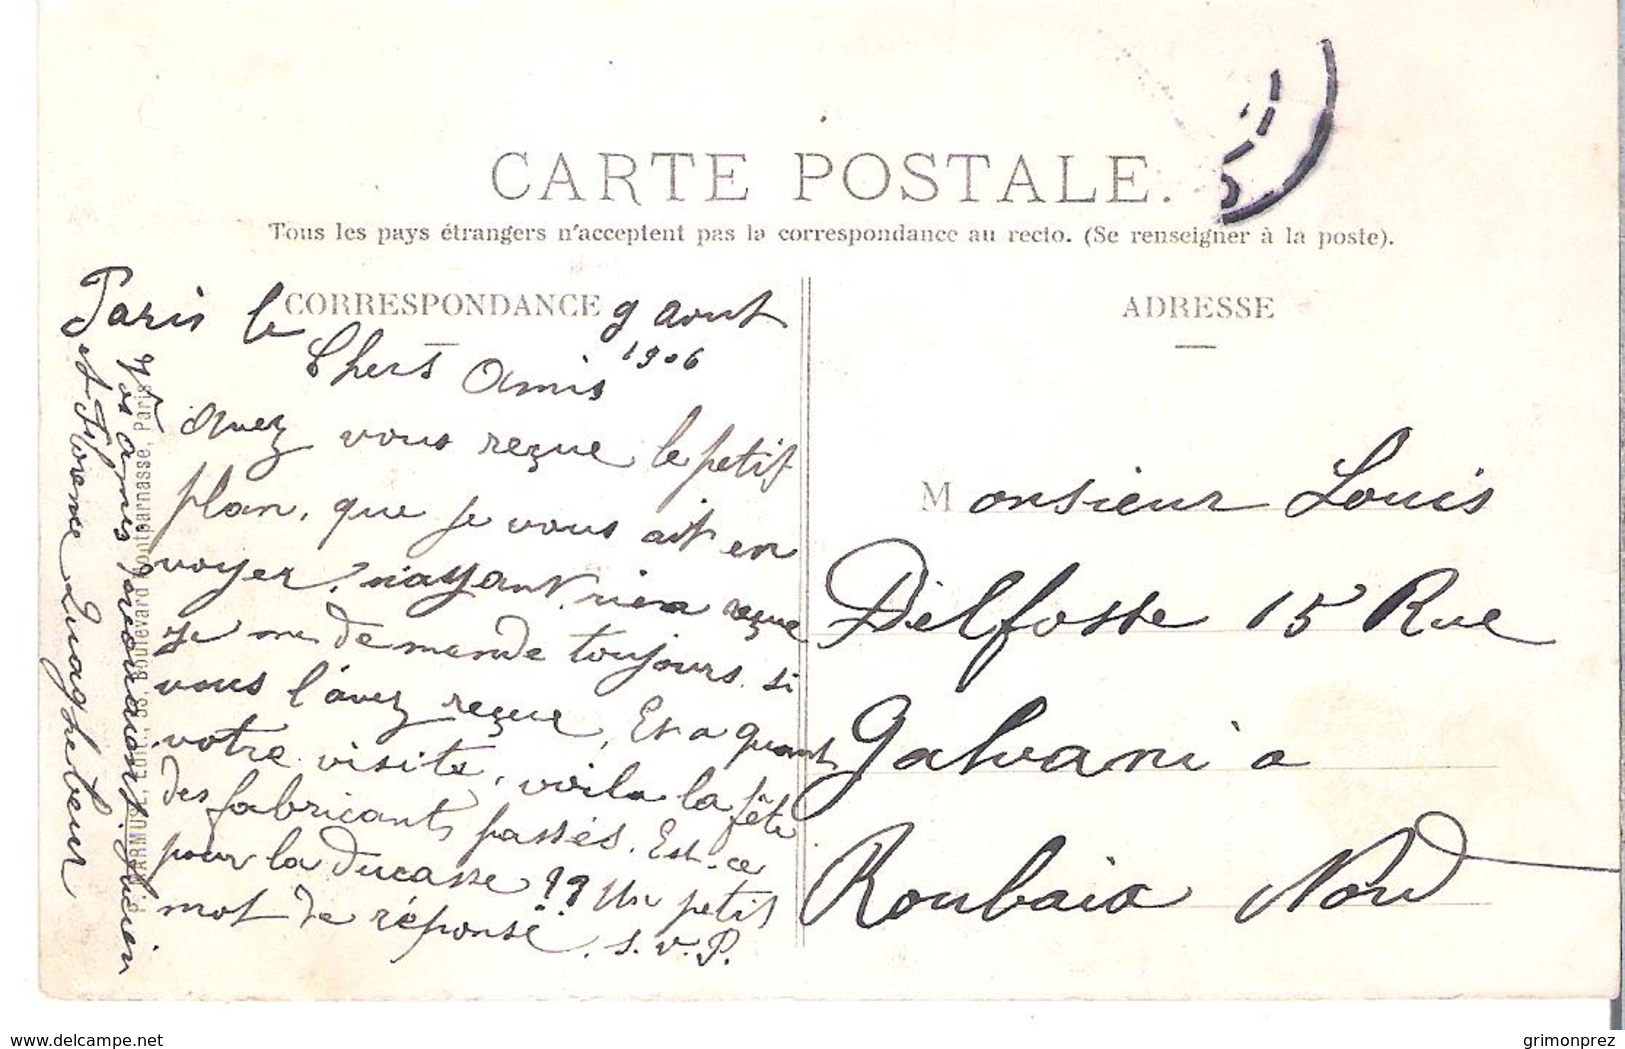 CARTE POSTALE.
Tous les pays étrangers n'acceptent pas la correspondance au recto. (Se renseigner à la poste).
CORRESPONDANCE
ADRESSE
Paris le 9 Aout
1906
Chers Amis
Avez vous reçue le petit
plan, que je vous ait en
voyer, n'ayant rien reçue
je me demande toujours si
vous l'avez reçue, Et a quant
votre visite, voila la fête
des fabricants passés. Est-ce
pour la ducasse ?? Un petit
mot de réponse. S.V.P.
Vos amis Lucien
et Florence Quaghebeur
Boulevard Montparnasse, Paris
Monsieur Louis
Delfosse 15 Rue
Galvani a
Roubaix Nord
www.delcampe.net
grimonprez